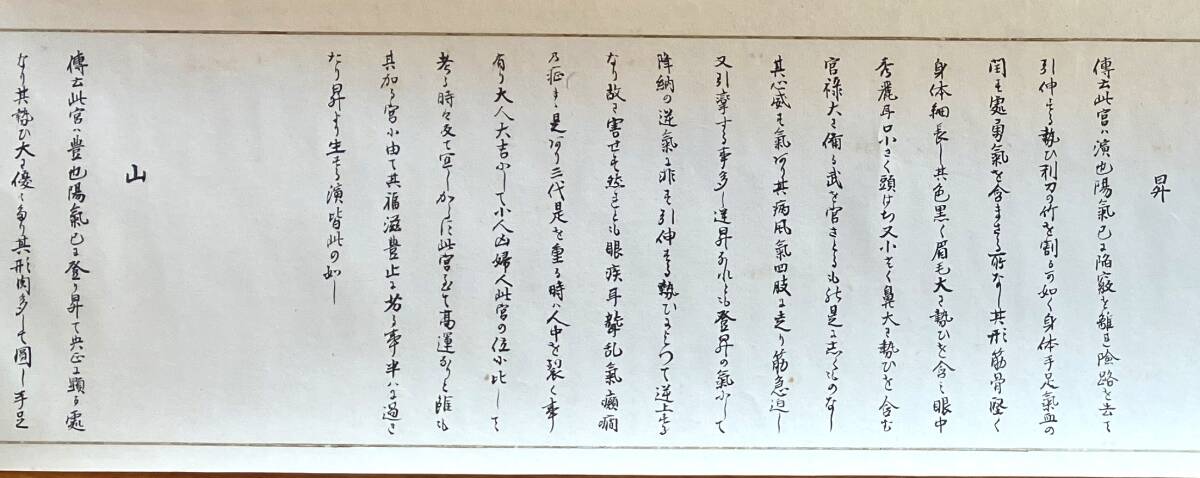 昇
傳云此宮ハ演也陽氣已に陥竅を離日険路を去て
引伸する勢ひ利刀の竹を割るの如く身体手足氣血の
閏に処勇氣を含まさる所なし其形筋骨堅く
身体細長し其色黒く眉毛大に勢ひを含ミ眼中
秀麗耳口小さく頭はち又小さく鼻大に勢ひを含む
官禄大に備る武を宮さとるも是に志くものなし
其心威も氣あり其病風氣四肢に走り筋急迫し
又引牽する事多し逆昇なれとも登昇の氣にして
降納の逆氣に非す引伸する勢ひによつて逆上する
なり故に害せす然しとも眼疾耳聾乱氣癲癇
の症は是あり三代是を重る時ハ人中を裂く事
有り大人大吉にして小人凶婦人此宮の位に比して
考る時々反て宜しからに此宮にて高運なりと雖も
其加る宮に由て其福滋豊止に考る事半ハに過き
なり昇より生する演皆此の如し
山
傳云此宮ハ豊也陽氣已に登り昇て央正に顕る処
なり其勢ひ大に優々あり其形肉多して圓し手足